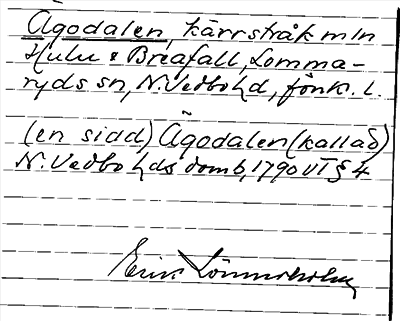 Ägodalen, kärrstråk mln
Hulu o Breafall, Lomma-
ryds sn, N. Vedbo hd, Jönk. l.
(en sidd) Ägodalen (kallad)
N. Vedbo hds domb, 1790 VT § 4
Erik